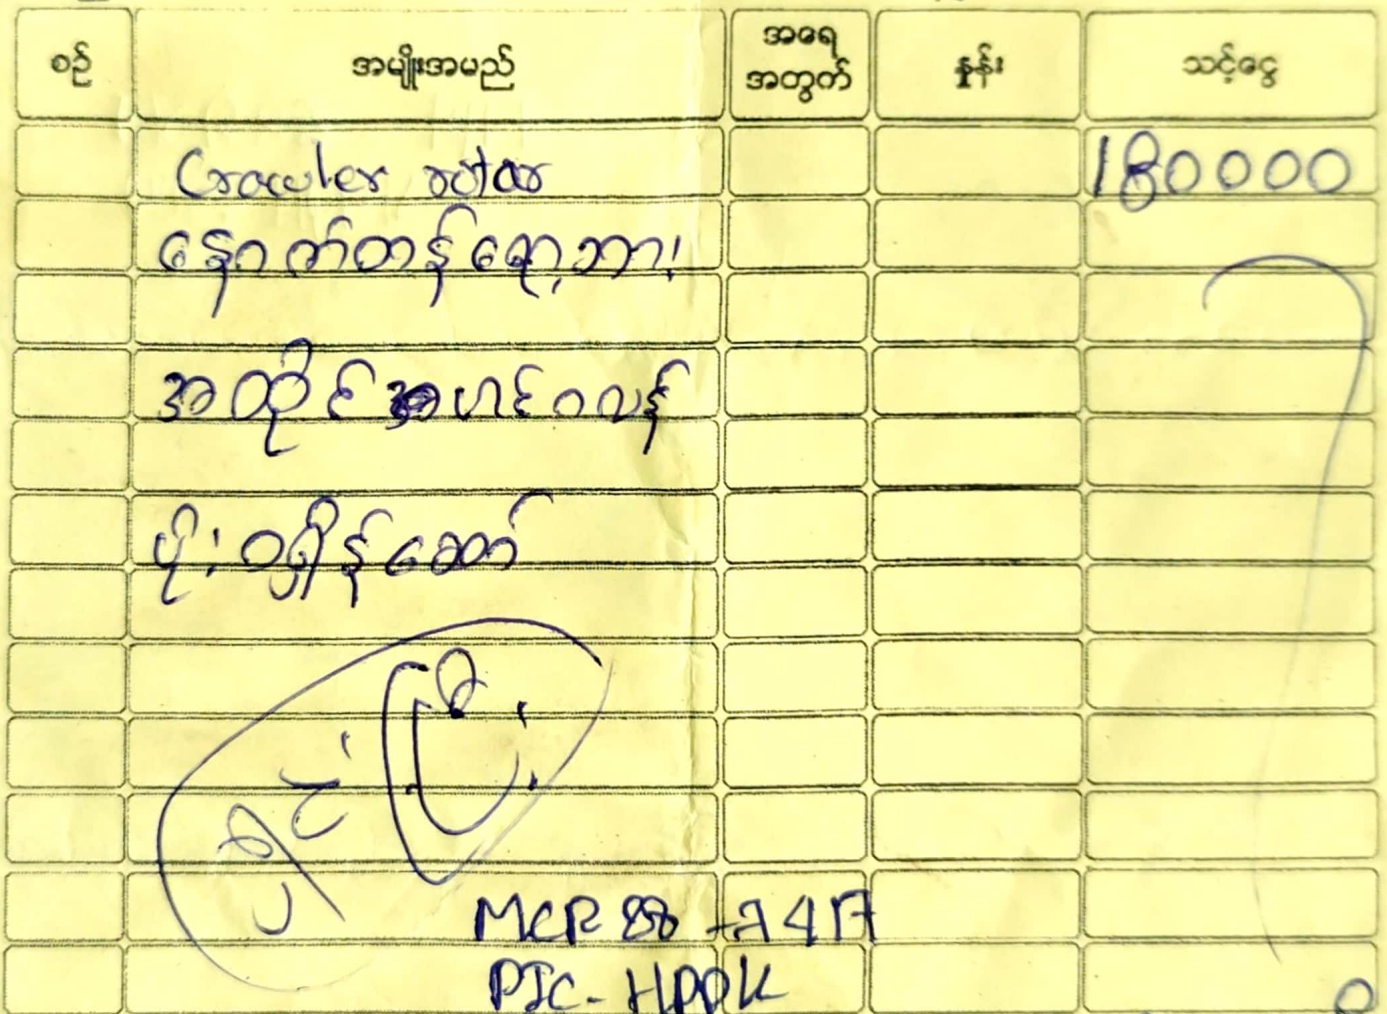 စဉ် အမျိုးအမည် အရေအတွက် နှုန်း သင့်ငွေ
Crawler rotor 180000
နောက်တန်ရော့ဘာ!
အထိုင်
ပိုး ဝရှိန်ဆော်
ရှင်းပြီး
MCR 88 - 747
PIC - HPPK